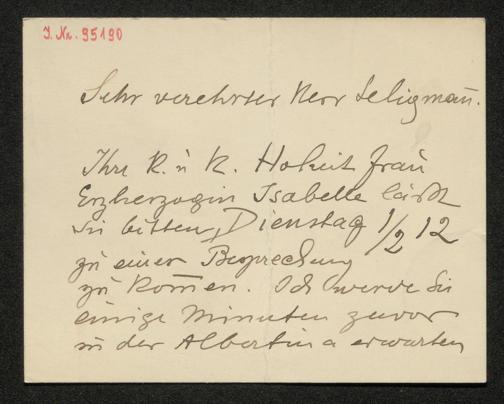 I. Nr. 95190
Sehr verehrter Herr Seligmañ.
Ihre K. u K. Hoheit Frau
Erzherzogin Isabelle läßt
Sie bitten, Dienstag 1/2 12
zu einer Besprechung
zu kom̄en. Ich werde Sie
einige Minuten zuvor
in der Albertina erwarten